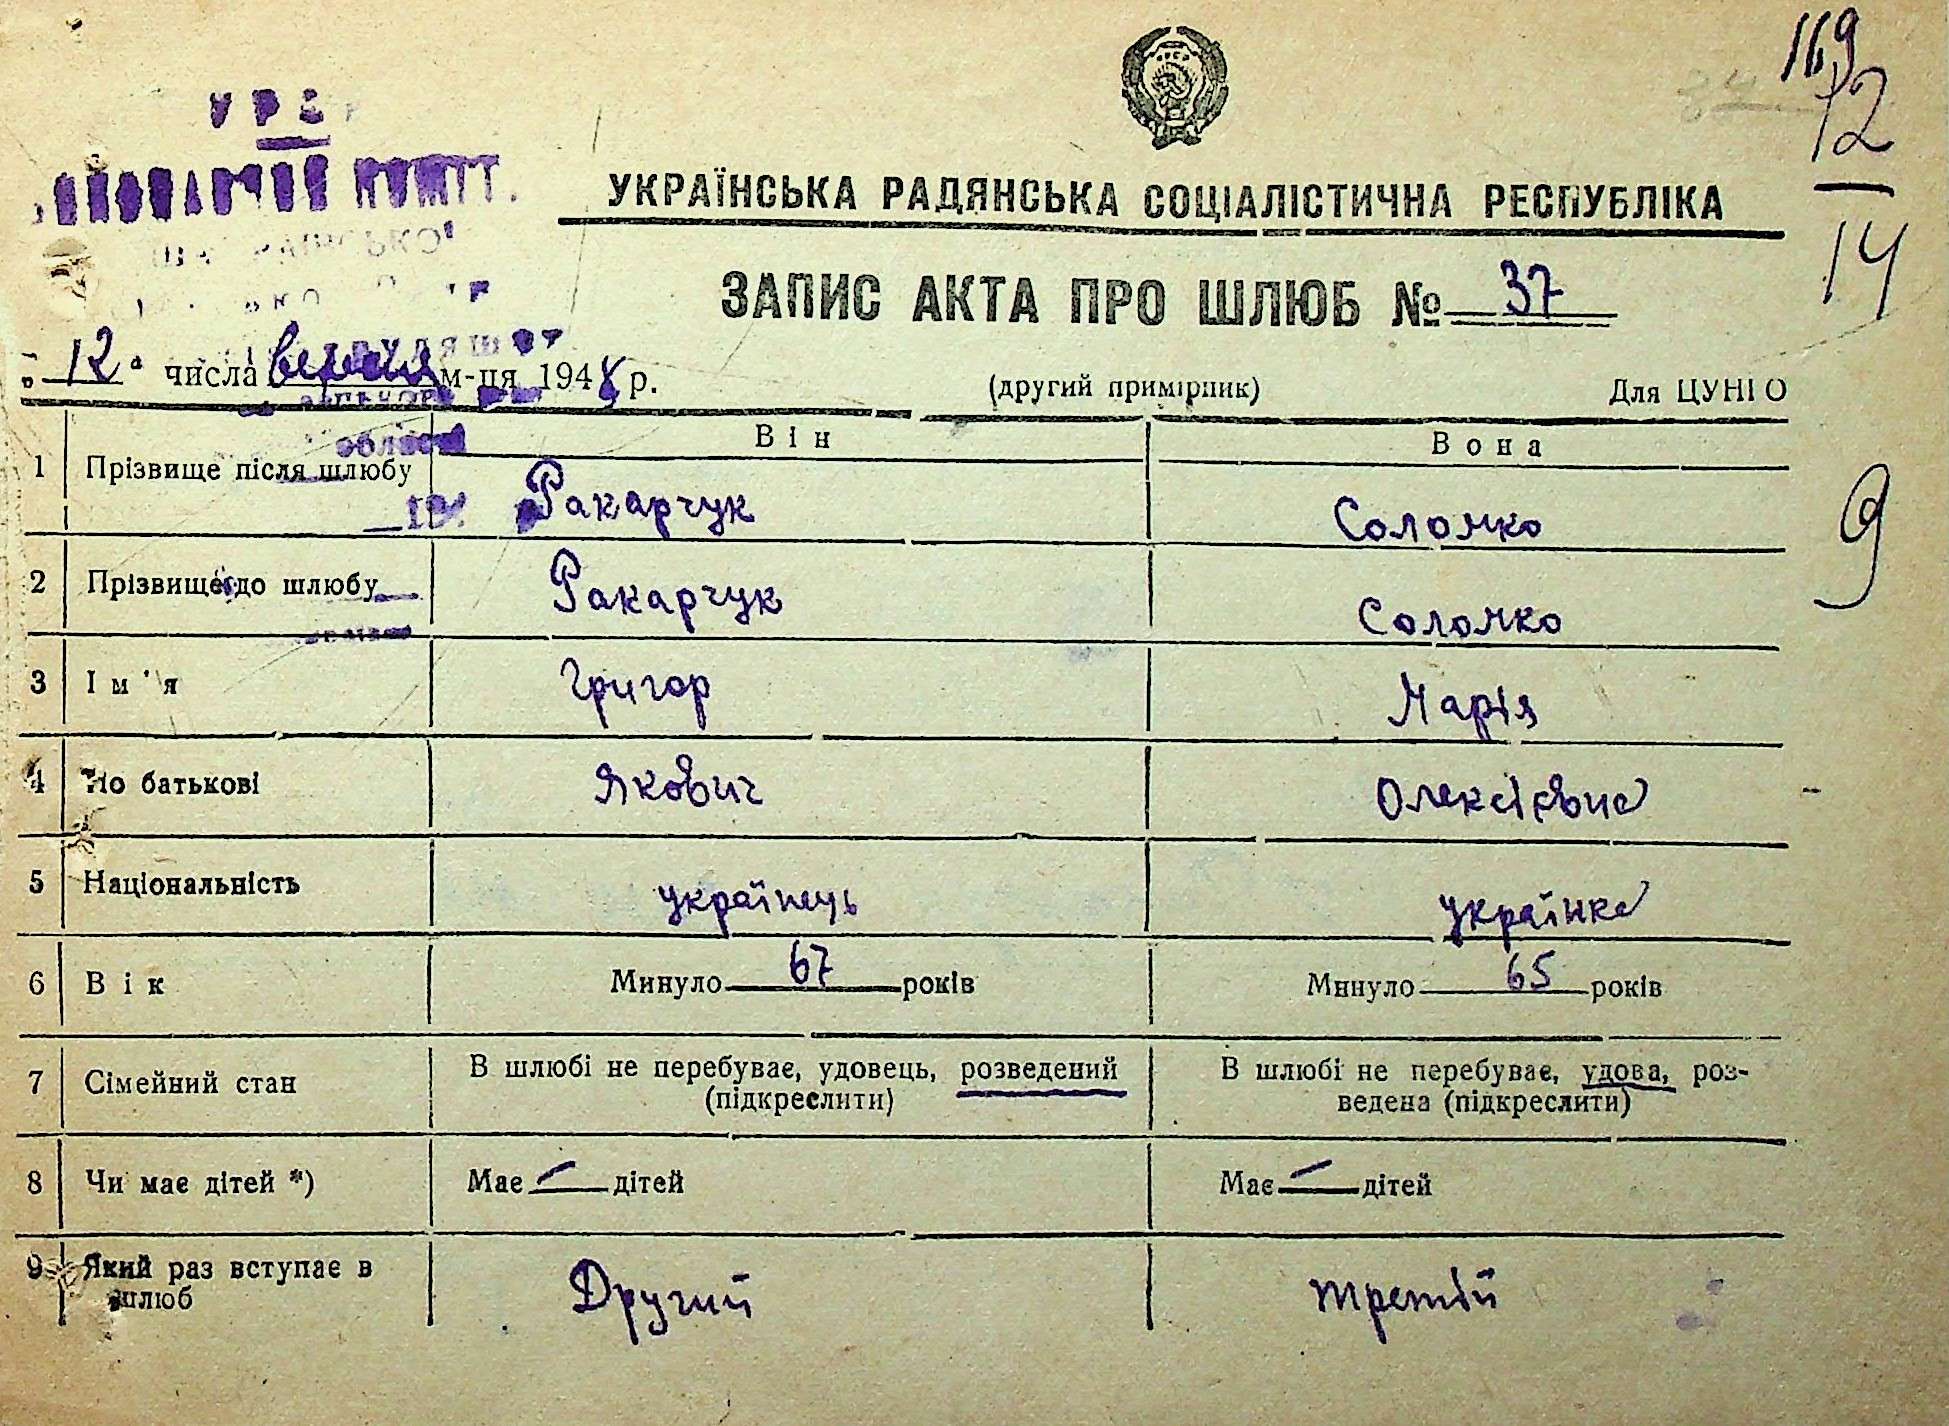 169
12
14
9
УКРАЇНСЬКА РАДЯНСЬКА СОЦІАЛІСТИЧНА РЕСПУБЛІКА
ЗАПИС АКТА ПРО ШЛЮБ № 37
"12" числа м-ця 1948 р.
(другий примірник)
Для ЦУНГО
Він
Вона
1 Прізвище після шлюбу Ракарчук Соломко
2 Прізвище до шлюбу Ракарчук Соломко
3 Ім'я Григор Марія
4 По батькові Якович Олексієвна
5 Національність українець українка
6 Вік Минуло 67 років Минуло 65 років
7 Сімейний стан В шлюбі не перебуває, удовець, розведений В шлюбі не перебуває, удова, роз-
(підкреслити) ведена (підкреслити)
8 Чи має дітей *) Має — дітей Має — дітей
9 Який раз вступає в Другий третій
шлюб